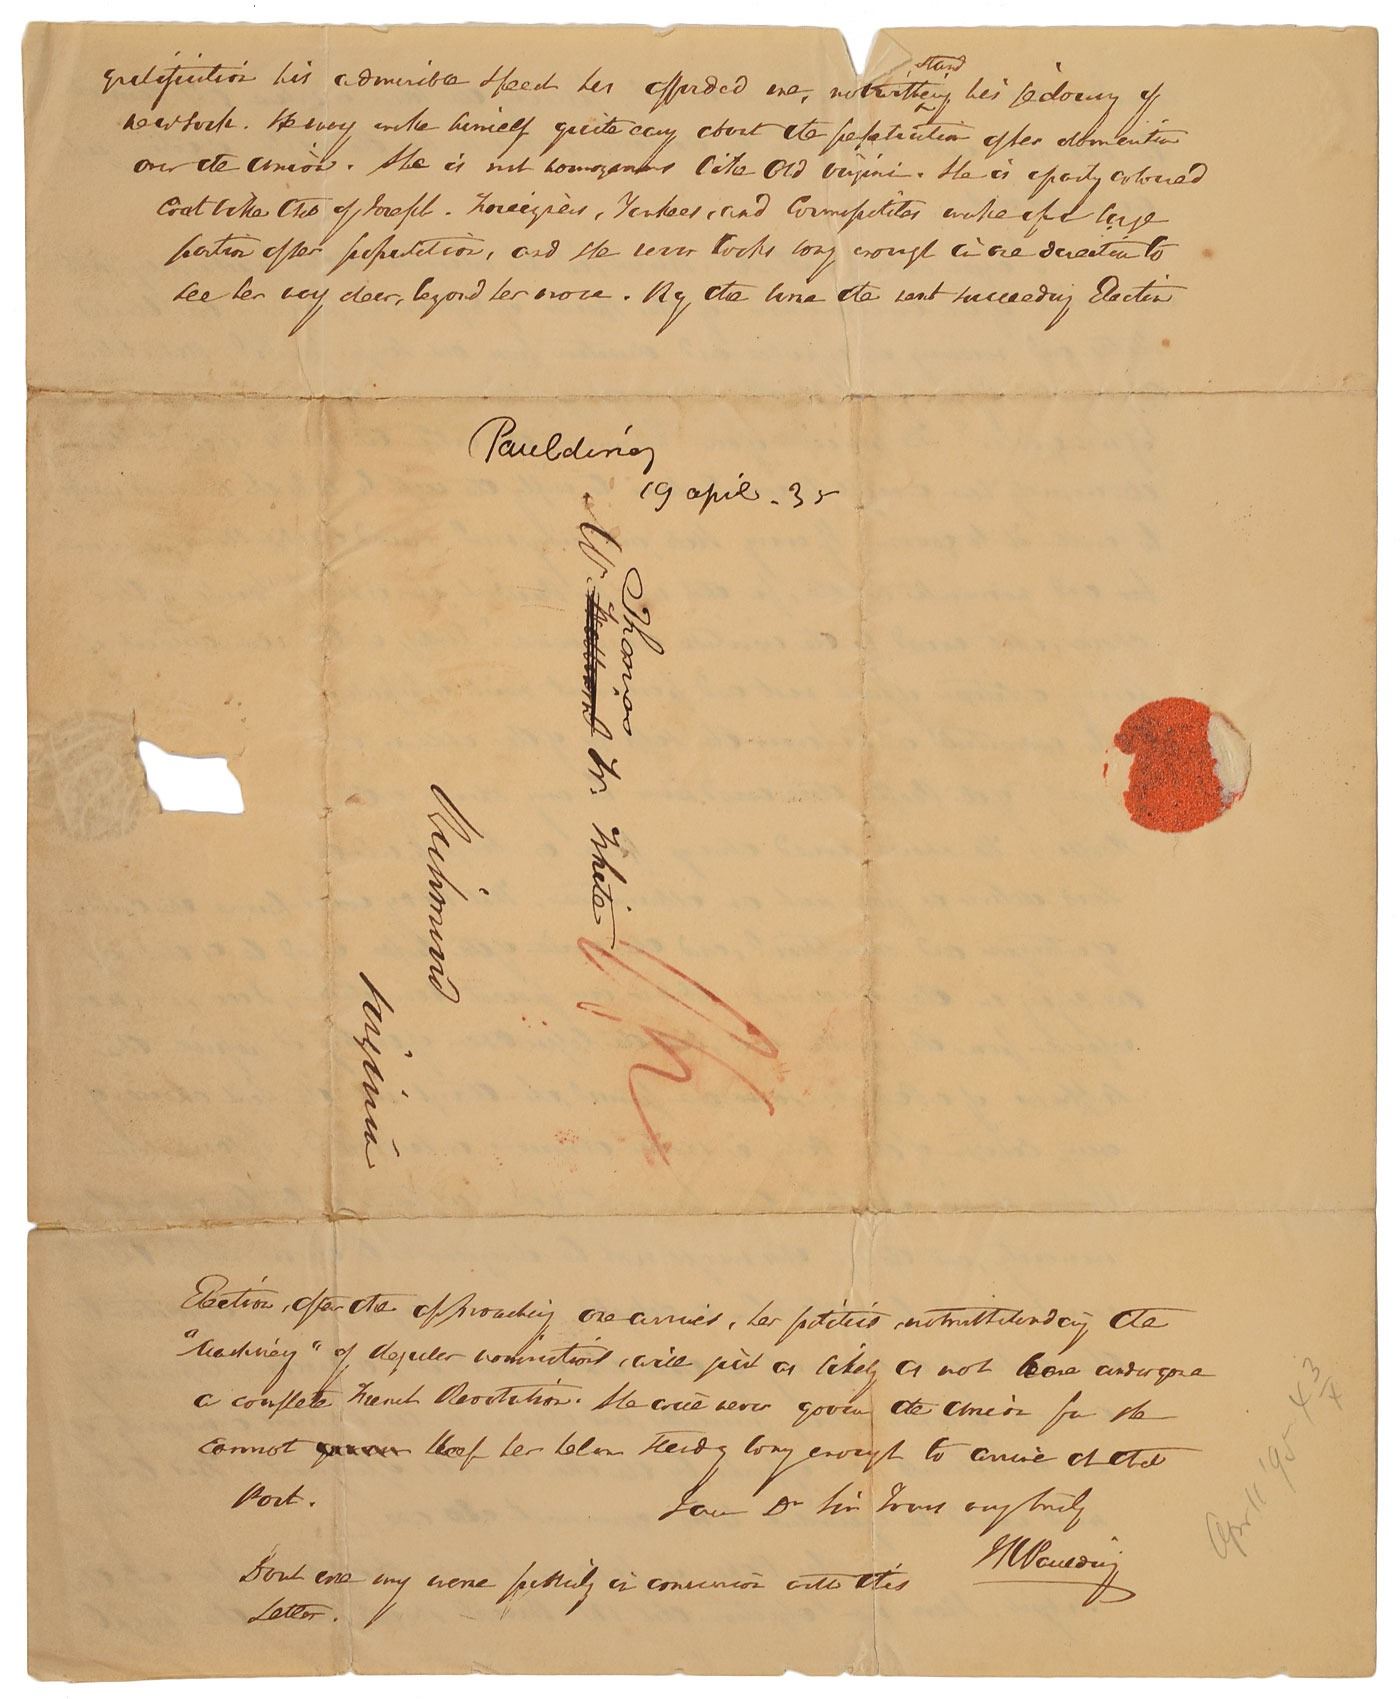 gratification his admirable Speech has afforded me, notwithing his jealousy of
stand
New York. He may make himself quite easy about the aspiration after domination
over the Union. She is not homogeneous like Old Virginia. She is a party coloured
Coat like that of Joseph. Foreigners, Yankees, and Cosmopolites make up a large
portion of her population, and she never looks long enough in one direction to
see her way clear, beyond her nose. By the time the next succeeding Election
Paulding
19 april. 35
Thomas
Mr. W. White
Richmond
Virginia
Election, after the approaching one arrives, her politics, notwithstanding the
"Machinery" of Regular nominations, will just as likely as not have undergone
a complete French Revolution. She will never govern the Union for she
cannot keep her helm steady long enough to arrive at that
Port.
I am Dr Sir Yours very truly
JK Paulding
Dont use my name publicly in connexion with this
Letter.
April '95